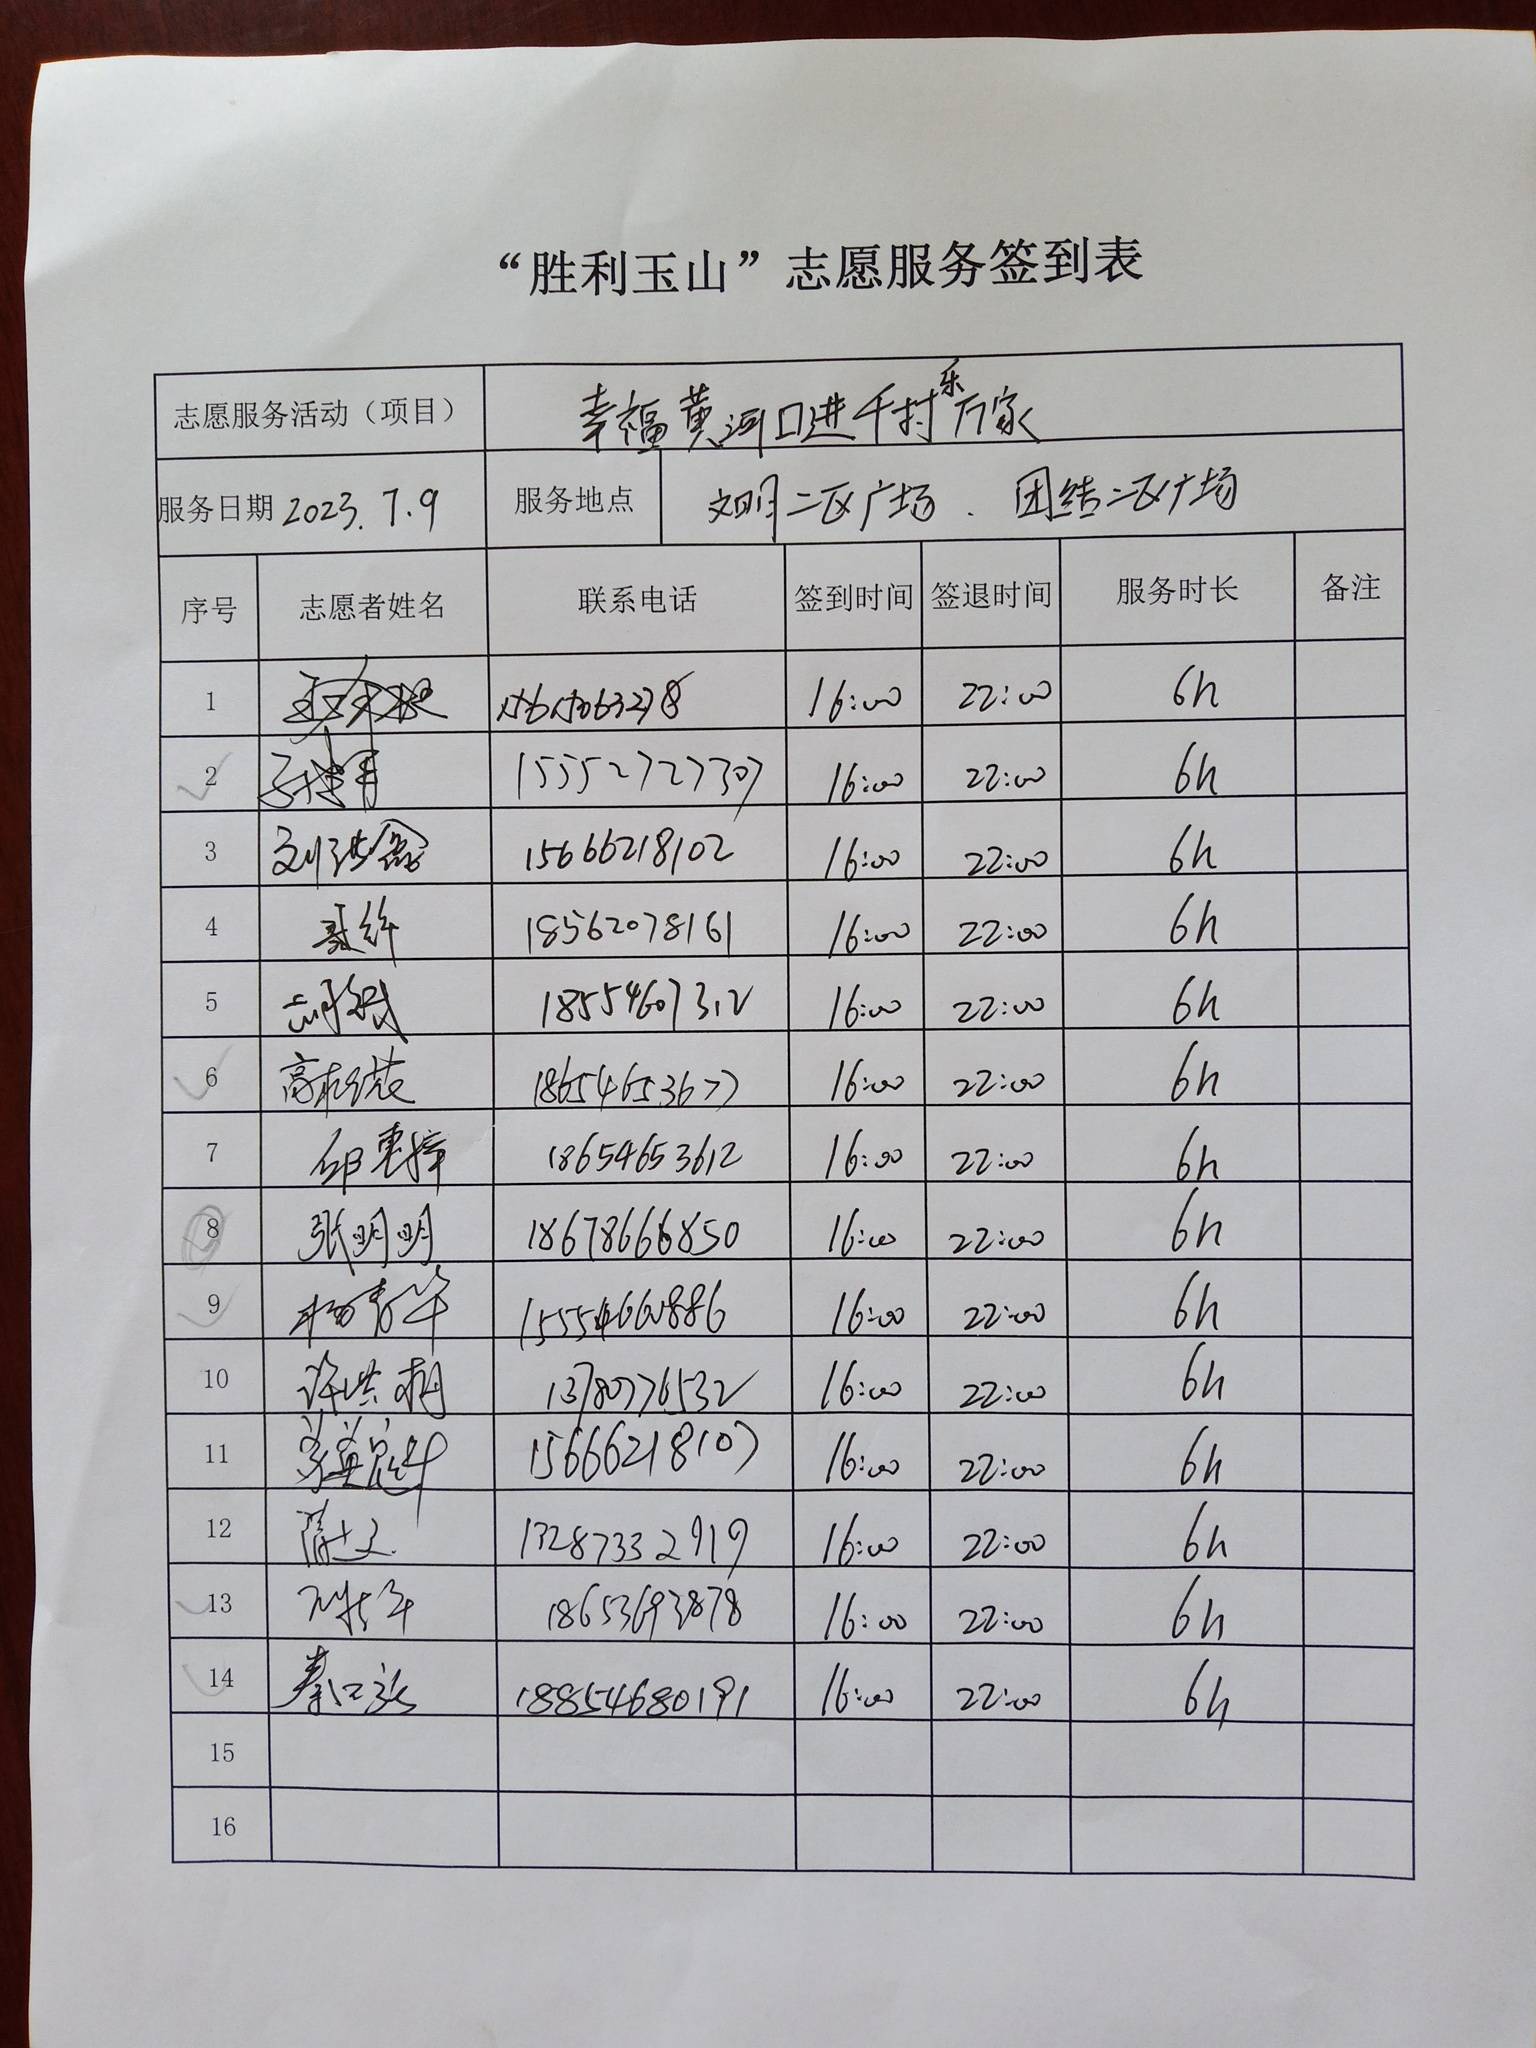 “胜利玉山”志愿服务签到表
志愿服务活动（项目） 幸福黄河口进千村乐万家
服务日期 2023.7.9 服务地点 文明二区广场、团结二区广场
序号 志愿者姓名 联系电话 签到时间 签退时间 服务时长 备注
1 16:00 22:00 6h
2 15552727307 16:00 22:00 6h
3 刘洪鑫 15666218102 16:00 22:00 6h
4 18562078161 16:00 22:00 6h
5 18554607312 16:00 22:00 6h
6 18654653677 16:00 22:00 6h
7 邱惠婷 18654653612 16:00 22:00 6h
8 张明明 18678666850 16:00 22:00 6h
9 杨春华 15554660886 16:00 22:00 6h
10 许洪梅 13780776532 16:00 22:00 6h
11 15666218107 16:00 22:00 6h
12 13287332919 16:00 22:00 6h
13 18653693878 16:00 22:00 6h
14 18854680191 16:00 22:00 6h
15
16